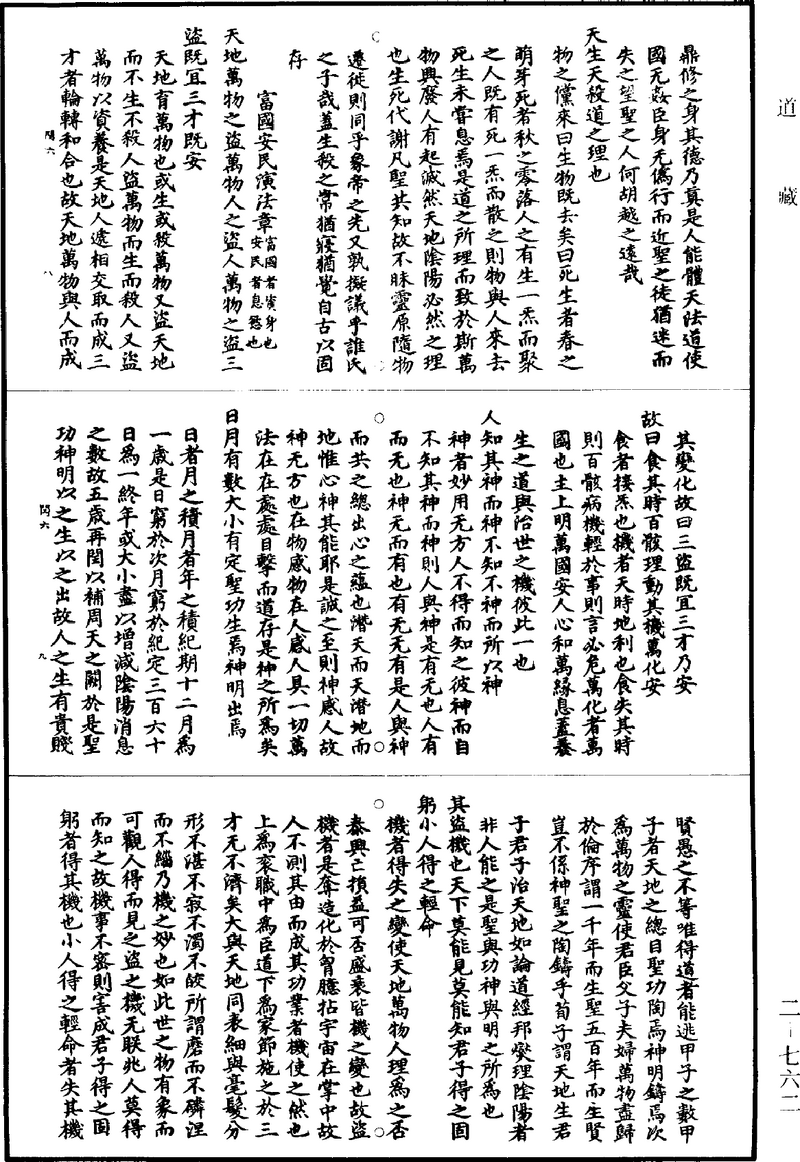 道藏
鼎修之身其德乃眞是人能體天法道使
國无姦臣身无僞行而近聖之徒猶迷而
失之望聖之人何胡越之遠哉
天生天殺道之理也
物之儻來曰生物既去矣曰死生者春之
萌芽死者秋之零落人之有生一炁而聚
之人既有死一炁而散之則物與人來去
死生未嘗息焉是道之所理而致於斯萬
物興廢人有起滅然天地陰陽必然之理
也生死代謝凡聖共知故不昧靈原隨物
遷徙則同乎象帝之先又孰擬議乎誰氏
之子哉蓋生殺之常猶寢猶覺自古以固
存
富國安民演法章富國者實身也安民者息慾也
天地萬物之盜萬物人之盜人萬物之盜三
盜既宜三才既安
天地育萬物也或生或殺萬物又盜天地
而不生不殺人盜萬物而生而殺人又盜
萬物以資養是天地人遞相交取而成三
才者輪轉和合也故天地萬物與人而成
閏六 八
其變化故曰三盜既宜三才乃安
故曰食其時百骸理動其機萬化安
食者採炁也機者天時地利也食失其時
則百骸病機輕於事則言必危萬化者萬
國也主上明萬國安人心和萬緣息蓋養
生之道與治世之機彼此一也
人知其神而神不知不神而所以神
神者妙用无方人不得而知之彼神而自
不知其神而神則人與神是有无也人有
而无也神无而有也有无无有是人與神
而共之總出心之蘊也潛天而天潛地而
地惟心神其能耶是誠之至則神感人故
神无方也在物感物在人感人具一切萬
法在在處處目擊而道存是神之所爲矣
日月有數大小有定聖功生焉神明出焉
日者月之積月者年之積紀期十二月爲
一歲是日窮於次月窮於紀定三百六十
日爲一終年或大小盡以增減陰陽消息
之數故五歲再閏以補周天之闕於是聖
功神明以之生以之出故人之生有貴賤
閏六 九
賢愚之不等唯得道者能逃甲子之數甲
子者天地之總目聖功陶焉神明鑄焉次
爲萬物之靈使君臣父子夫婦萬物盡歸
於倫序謂一千年而生聖五百年而生賢
豈不係神聖之陶鑄乎荀子謂天地生君
子君子治天地如論道經邦燮理陰陽者
非人能之是聖與功神與明之所爲也
其盜機也天下莫能見莫能知君子得之固
躬小人得之輕命
機者得失之變使天地萬物人理爲之否
泰興亡損益可否盛衰皆機之變也故盜
機者是奪造化於胷臆拈宇宙在掌中故
人不測其由而成其功業者機使之然也
上爲衮職中爲臣道下爲家節施之於三
才无不濟矣大與天地同表細與毫髮分
形不湛不寂不濁不皎所謂磨而不磷涅
而不緇乃機之妙也如此世之物有象而
可觀人得而見之盜之機无朕兆人莫得
而知之故機事不密則害成君子得之固
躬者得其機也小人得之輕命者失其機
二-七六二